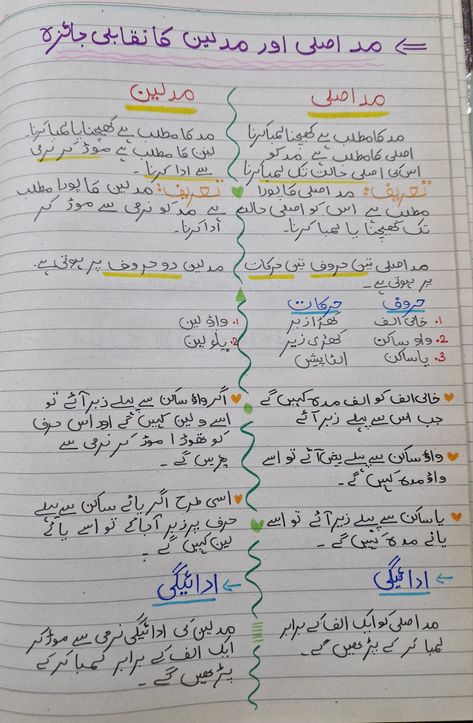 مد اصلی اور مدلین کا تقابلی جائزہ
مد اصلی
مد کا مطلب ہے کھینچنا لمبا کرنا
اصلی کا مطلب ہے مد کو
اس کی اصلی حالت تک لمبا کرنا
تعریف: مد اصلی کا پورا
مطلب ہے اس کو اصلی حالت
تک کھینچنا یا لمبا کرنا۔
مد اصلی تین حروف تین حرکات
پر ہوتی ہے۔
حروف حرکات
1. خالی الف کھڑا زبر
2. واو ساکن کھڑی زیر
3. یا ساکن الٹا پیش
خالی الف کو الف مدہ کہیں گے
جب اس سے پہلے زبر آئے
واؤ ساکن سے پہلے پیش آئے تو اسے
واؤ مدہ کہیں گے۔
یا ساکن سے پہلے زیر آئے تو اسے
یائے مدہ کہیں گے۔
ادائیگی
مد اصلی کو ایک الف کے برابر
لمبا کر کے پڑھیں گے۔
مدلین
مد کا مطلب ہے کھینچنا یا لمبا کرنا۔
لین کا مطلب ہے موڑ کر نرمی
سے ادا کرنا۔
تعریف: مدلین کا پورا مطلب
ہے مد کو نرمی سے موڑ کر
ادا کرنا۔
مدلین دو حروف پر ہوتی ہے۔
1. واؤ لین
2. یاء لین
اگر واؤ ساکن سے پہلے زبر آئے تو
اسے و لین کہیں گے اور اس حرف
کو تھوڑا موڑ کر نرمی سے
پڑیں گے۔
اسی طرح اگر یائے ساکن سے پہلے
حرف پر زبر آجائے تو اسے یائے
لین کہیں گے۔
ادائیگی
مدلین کی ادائیگی نرمی سے موڑ کر
ایک الف کے برابر لمبا کر کے
پڑھیں گے۔